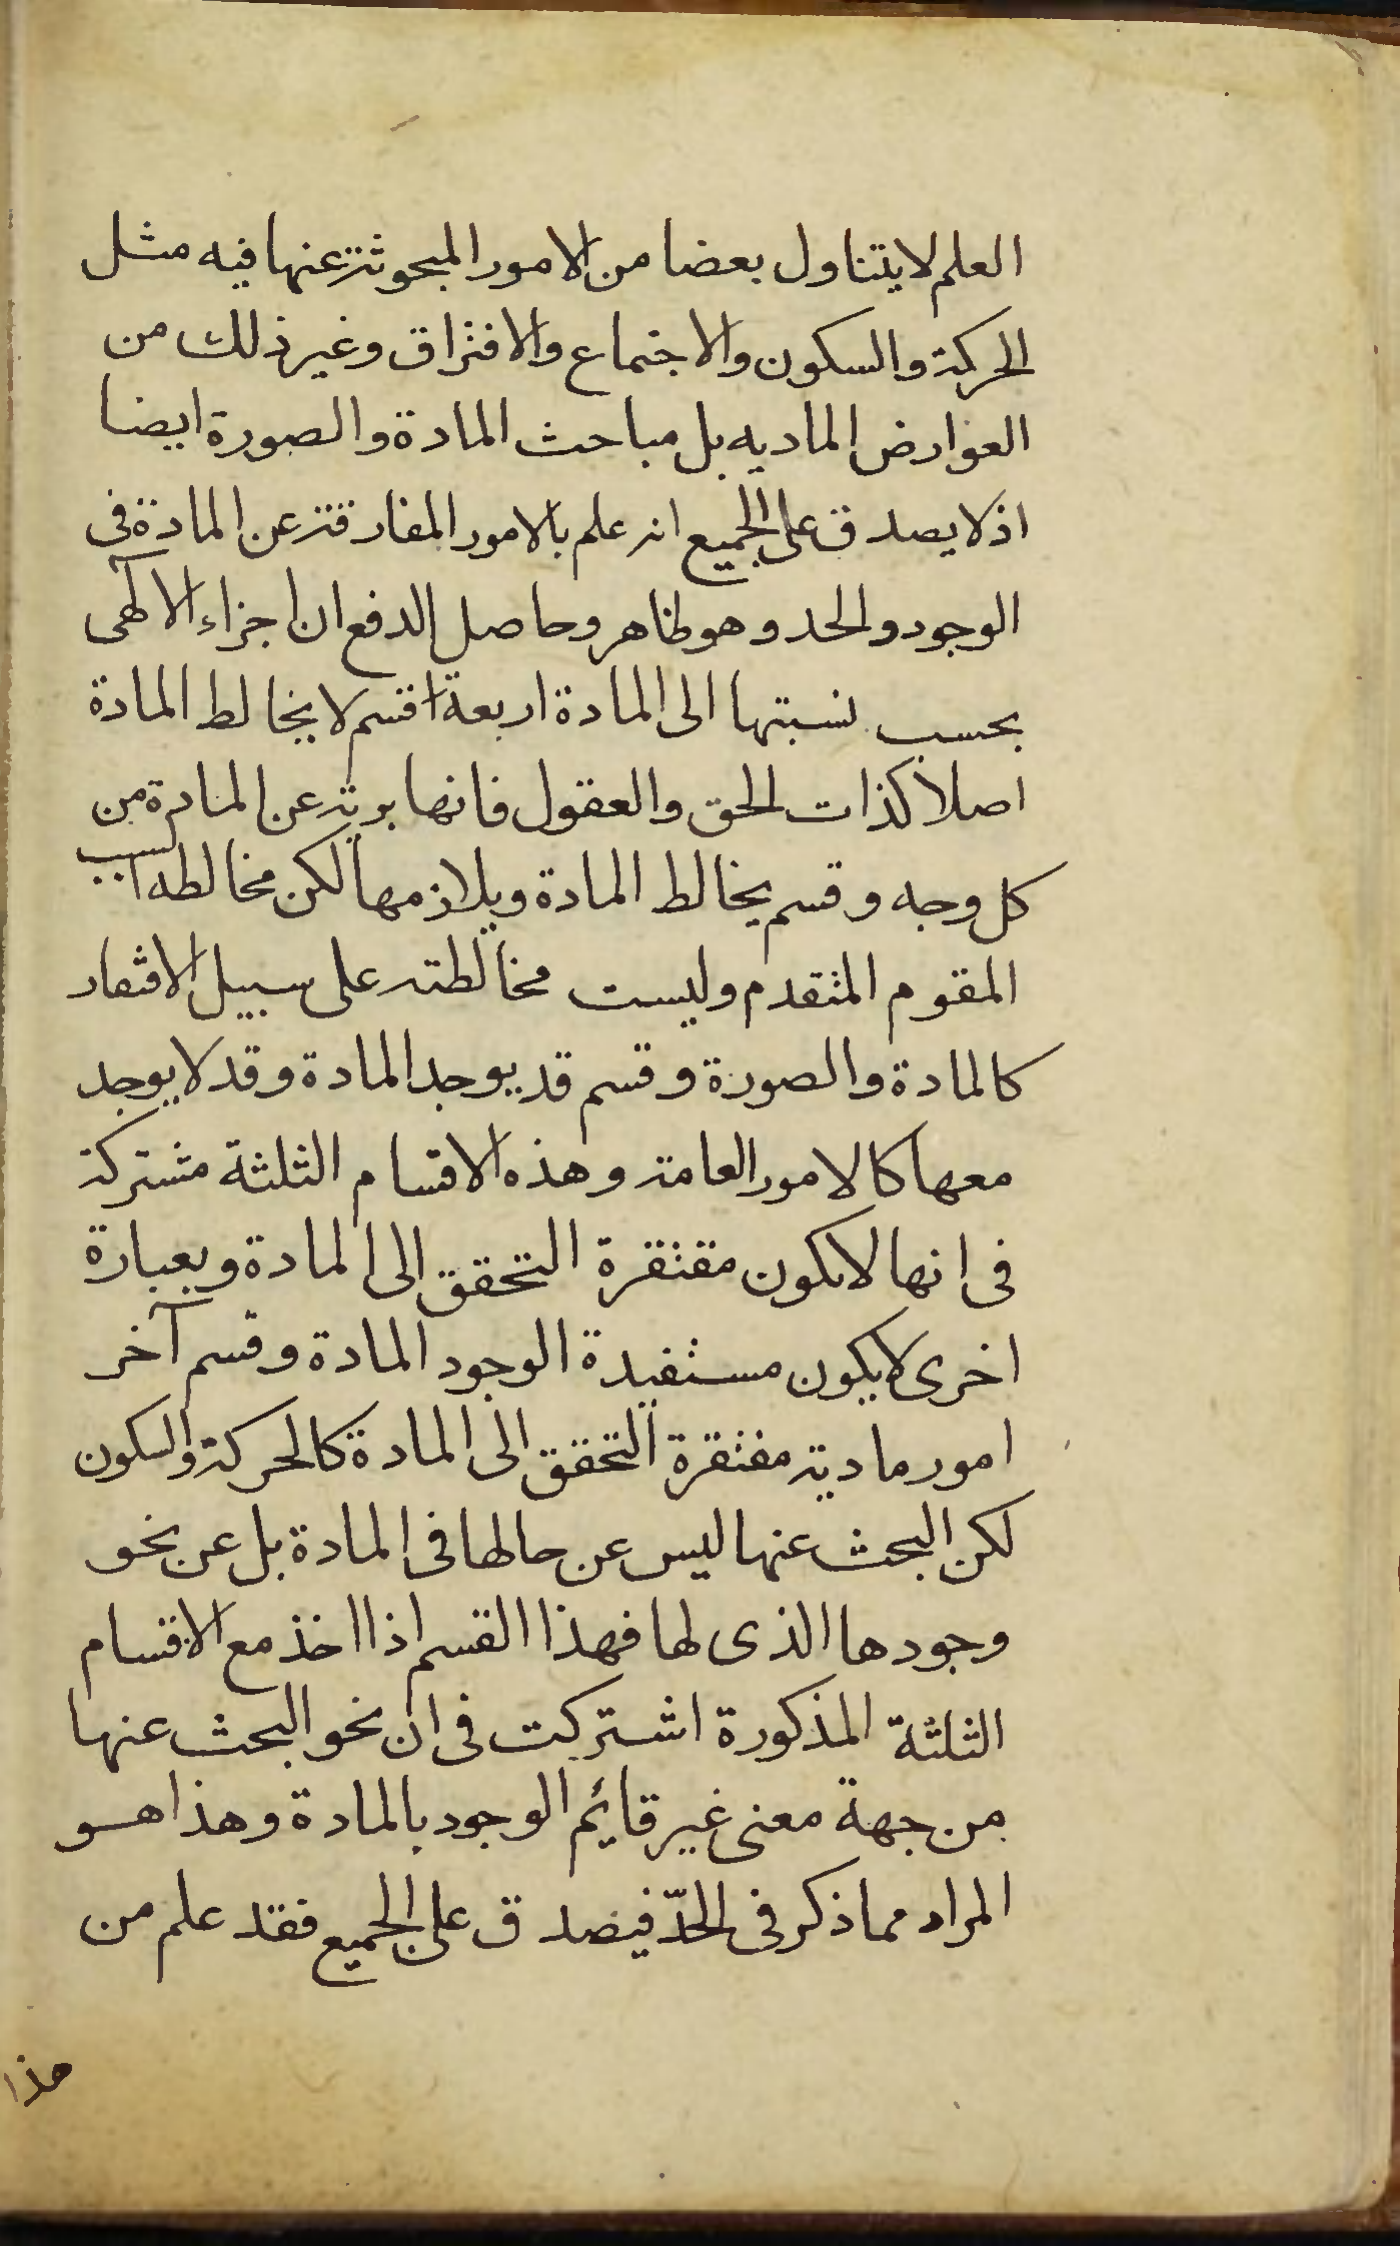 العلم لا يتناول بعضا من الامور المبحوثة عنها فيه مثل
الحركة والسكون والاجتماع والافتراق وغير ذلك من
العوارض الماديه بل مباحث المادة والصورة ايضا
اذ لا يصدق على الجميع انه علم بالامور المفارقة عن المادة فى
الوجود والحد وهو ظاهر وحاصل الدفع ان اجزاء الآلهى
بحسب نسبتها الى المادة اربعة اقسم لا يخالط المادة
اصلا كذات الحق والعقول فانها برية عن المادة من
كل وجه وقسم يخالط المادة ويلازمها لكن مخالطه السبب
المقوم المتقدم وليست مخالطته على سبيل الافتقار
كالمادة والصورة وقسم قد يوجد المادة وقد لا يوجد
معها كالامور العامة وهذه الاقسام الثلثة مشتركة
فى انها لا يكون مفتقرة التحقق الى المادة وبعبارة
اخرى لا يكون مستفيدة الوجود المادة وقسم آخر
امور مادية مفتقرة التحقق الى المادة كالحركة والسكون
لكن البحث عنها ليس عن حالها فى المادة بل عن نحو
وجودها الذى لها فهذا القسم اذا اخذ مع الاقسام
الثلثة المذكورة اشتركت فى ان نحو البحث عنها
من جهة معنى غير قائم الوجود بالمادة وهذا هو
المراد مما ذكر فى الحدّ فيصدق على الجميع فقد علم من
هذا